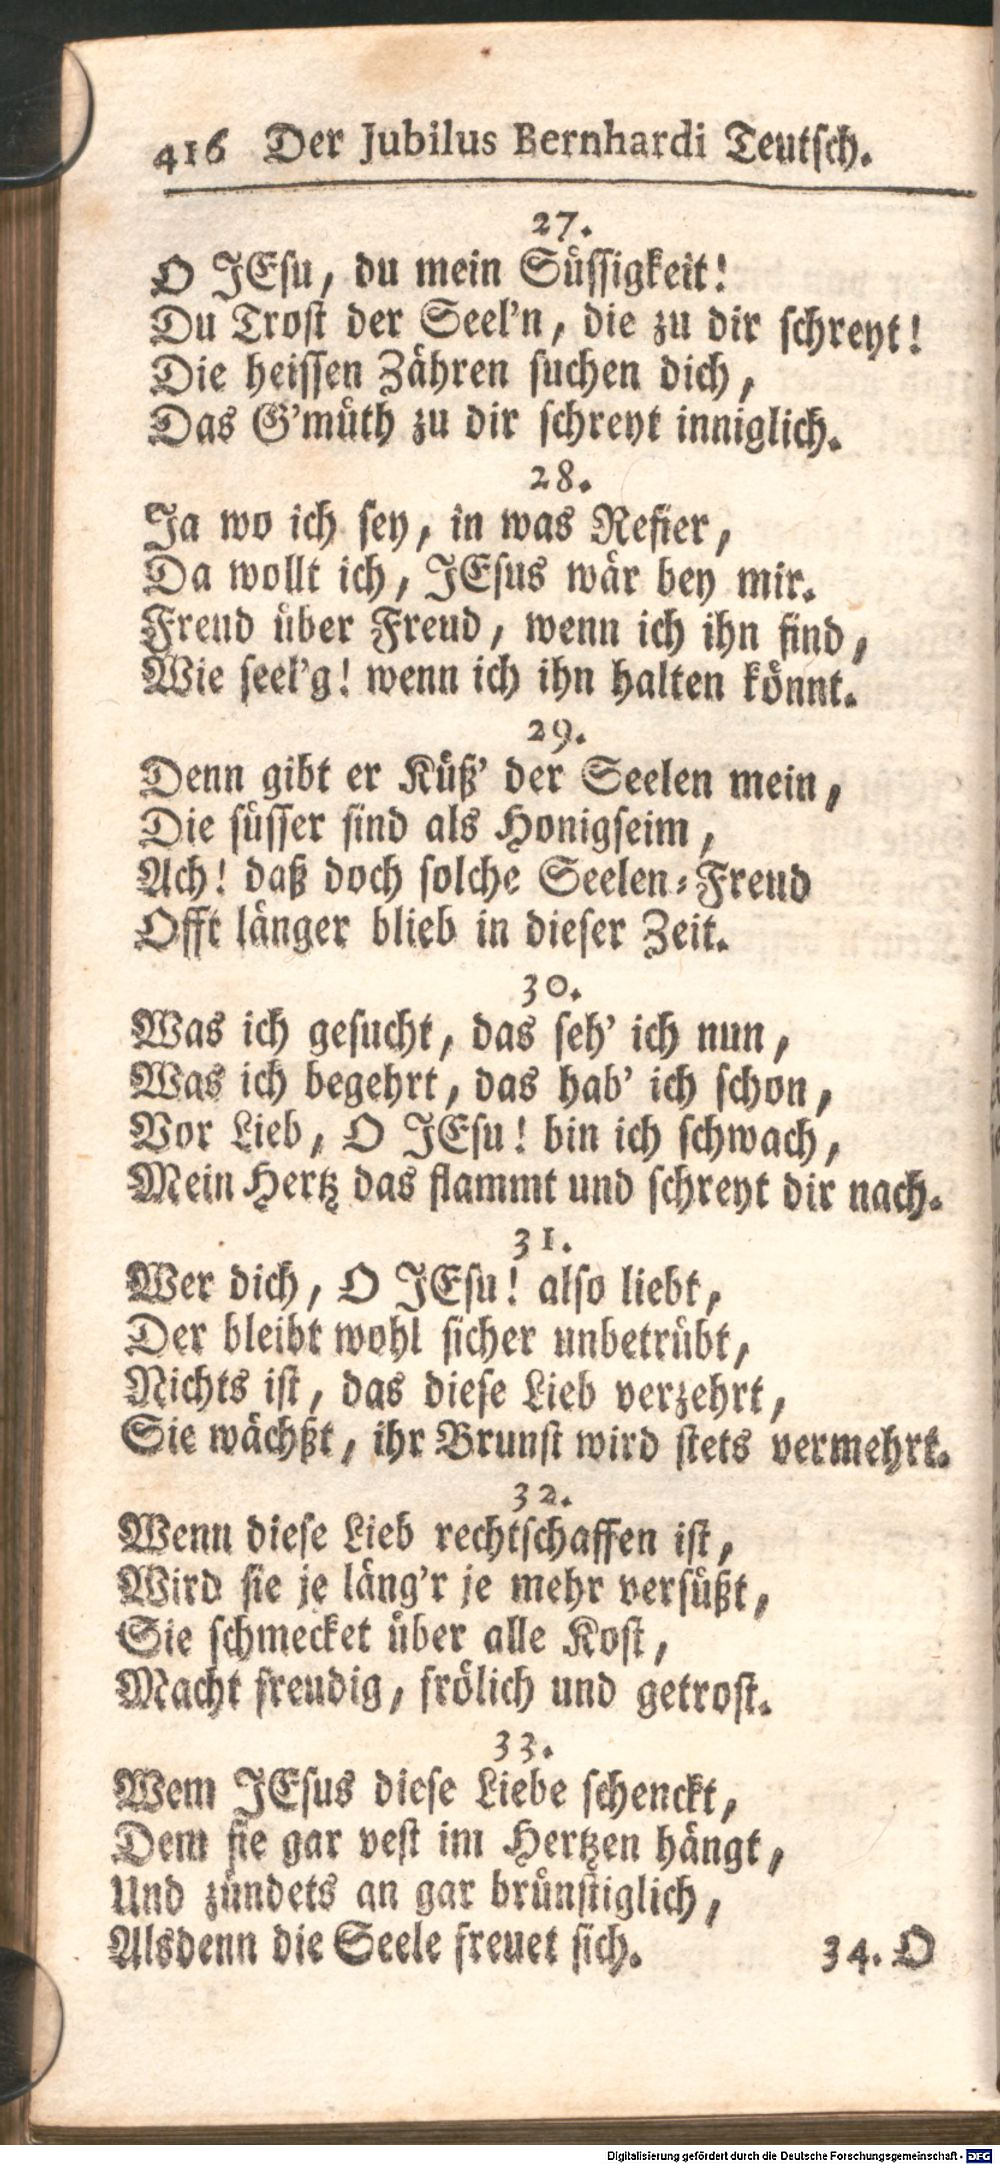 416 Der Jubilus Bernhardi Teutsch.
27.
O JEsu, du mein Süssigkeit!
Du Trost der Seel'n, die zu dir schreyt!
Die heissen Zähren suchen dich,
Das G'müth zu dir schreyt inniglich.
28.
Ja wo ich sey, in was Refier,
Da wollt ich, JEsus wär bey mir.
Freud über Freud, wenn ich ihn find,
Wie seel'g! wenn ich ihn halten könnt.
29.
Denn gibt er Küß' der Seelen mein,
Die süsser sind als Honigseim,
Ach! daß doch solche Seelen-Freud
Offt länger blieb in dieser Zeit.
30.
Was ich gesucht, das seh' ich nun,
Was ich begehrt, das hab' ich schon,
Vor Lieb, O JEsu! bin ich schwach,
Mein Hertz das flammt und schreyt dir nach.
31.
Wer dich, O JEsu! also liebt,
Der bleibt wohl sicher unbetrübt,
Nichts ist, das diese Lieb verzehrt,
Sie wächßt, ihr Brunst wird stets vermehrt.
32.
Wenn diese Lieb rechtschaffen ist,
Wird sie je läng'r je mehr versüßt,
Sie schmecket über alle Kost,
Macht freudig, frölich und getrost.
33.
Wem JEsus diese Liebe schenckt,
Dem sie gar vest im Hertzen hängt,
Und zündets an gar brünstiglich,
Alsdenn die Seele freuet sich.
34. O
Digitalisierung gefördert durch die Deutsche Forschungsgemeinschaft - DFG